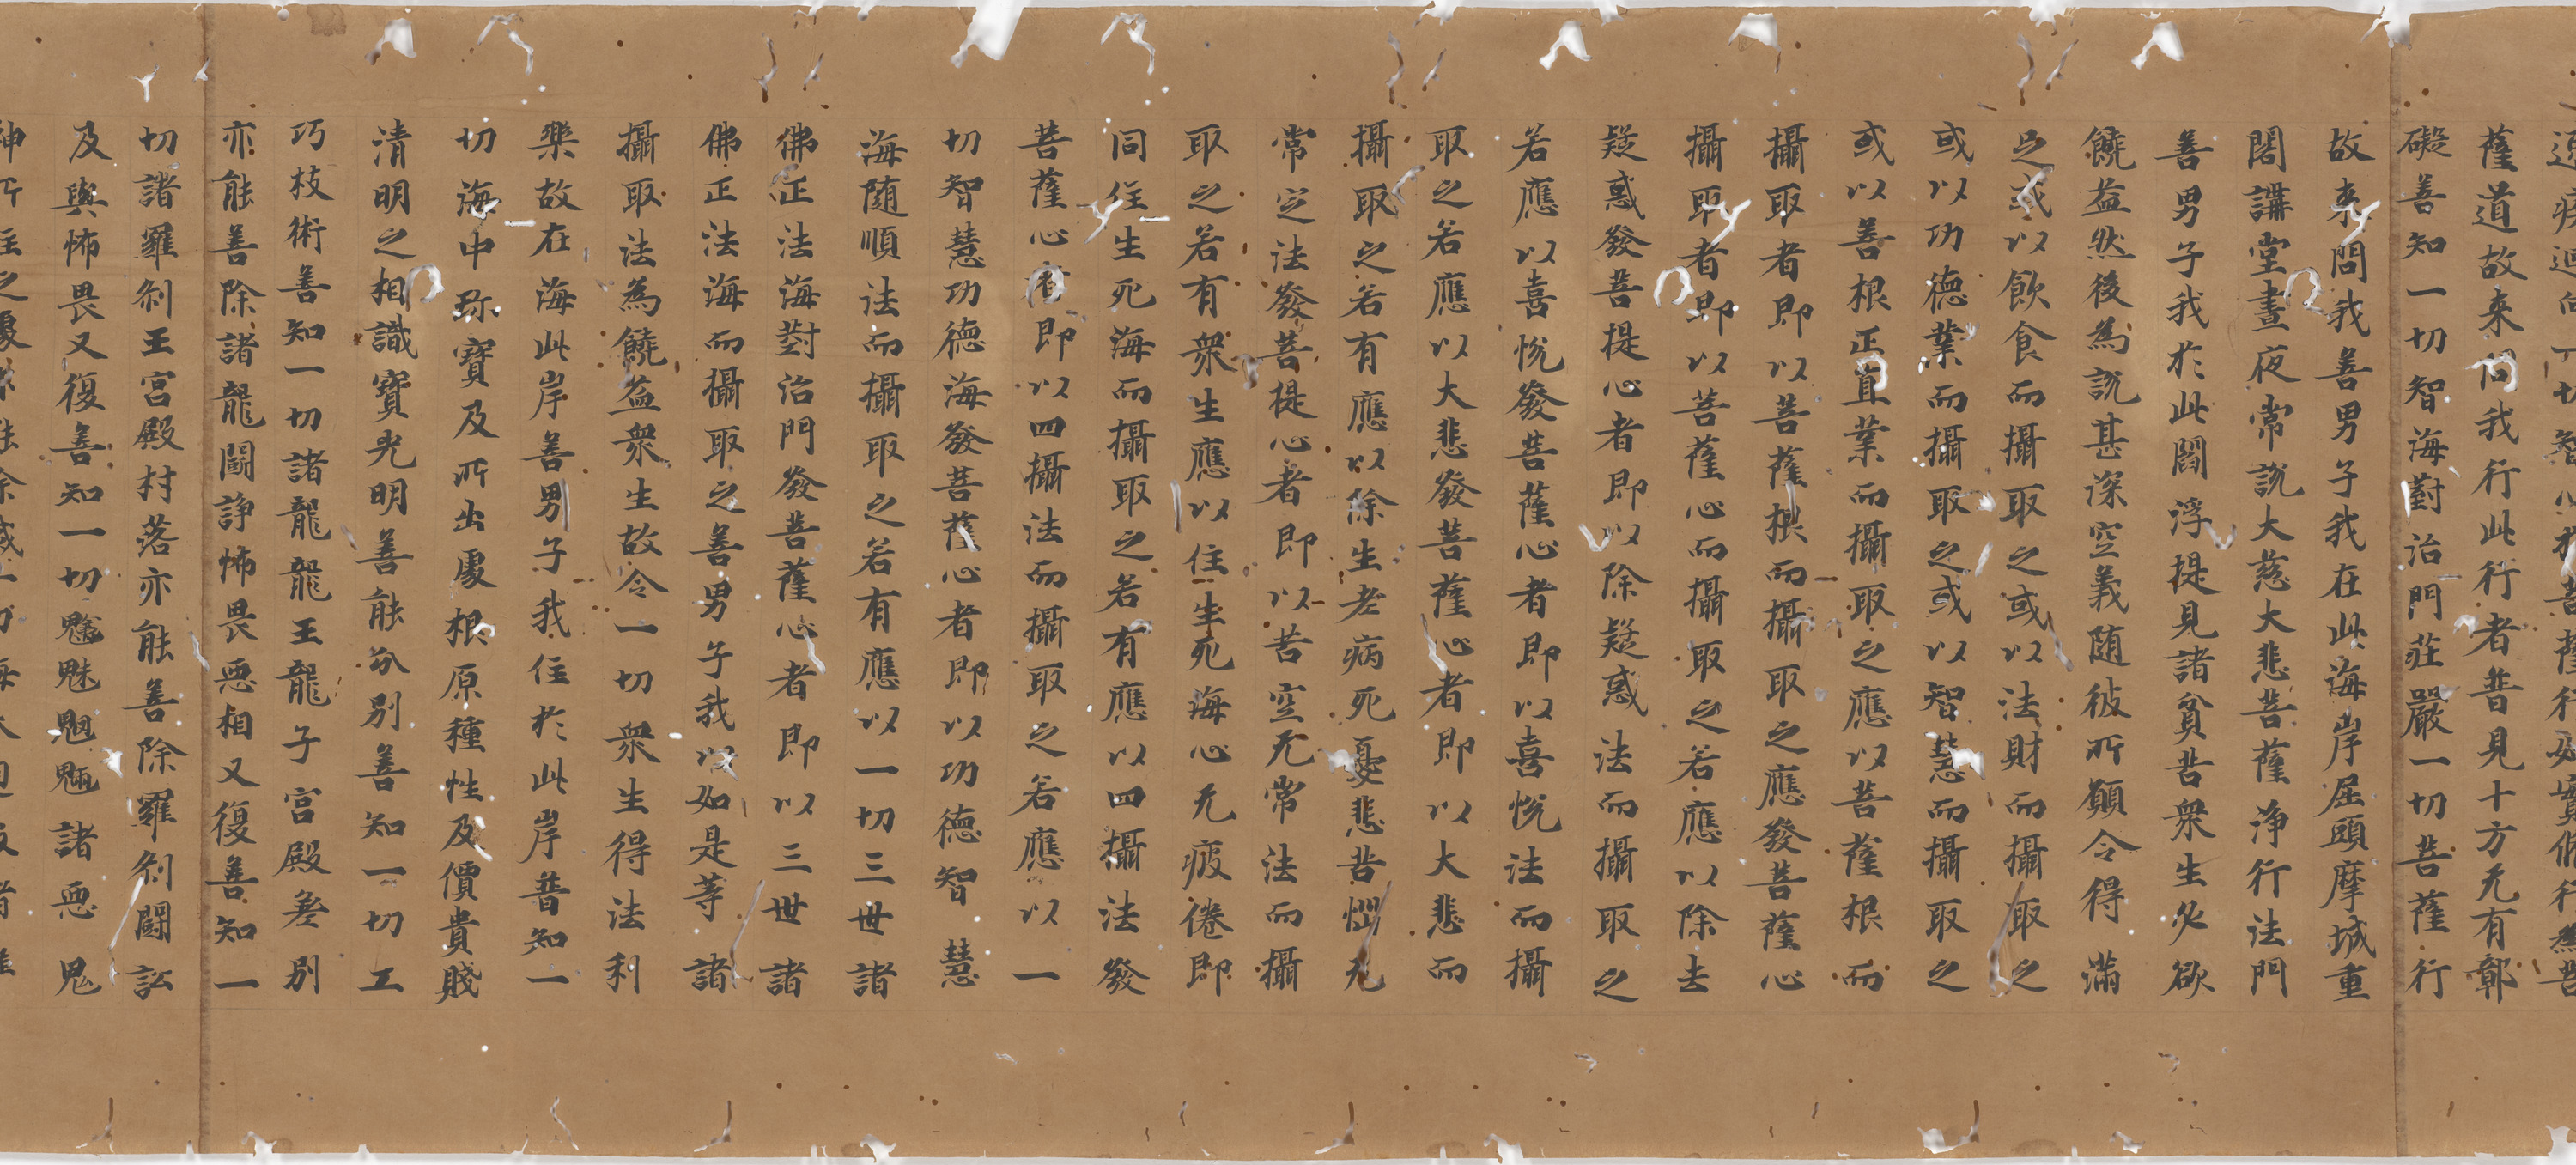 薩道故来問我行此行者普見十方无有鄣
礙善知一切智海對治門莊嚴一切菩薩行
故来問我善男子我在此海岸屈頭摩城重
閣講堂晝夜常説大慈大悲菩薩浄行法門
善男子我於此閻浮提見諸貧苦衆生必欲
饒益然後為説甚深空義随彼所願令得滿
足或以飲食而攝取之或以法財而攝取之
或以功德業而攝取之或以智慧而攝取之
或以善根正直業而攝取之應以菩薩根而
攝取者即以菩薩根而攝取之應發菩薩心
攝取者即以菩薩心而攝取之若應以除去
疑惑發菩提心者即以除疑惑法而攝取之
若應以喜悦發菩薩心者即以喜悦法而攝
取之若應以大悲發菩薩心者即以大悲而
攝取之若有應以除生老病死憂悲苦惱无
常定法發菩提心者即以苦空无常法而攝
取之若有衆生應以住生死海心无疲倦即
同住生死海而攝取之若有應以四攝法發
菩薩心者即以四攝法而攝取之若應以一
切智慧功德海發菩薩心者即以功德智慧
海随順法而攝取之若有應以一切三世諸
佛正法海對治門發菩薩心者即以三世諸
佛正法海而攝取之善男子我以如是等諸
攝取法為饒益衆生故令一切衆生得法利
樂故在海此岸善男子我住於此岸普知一
切海中珎寶及所出處根原種性及價貴賤
清明之相識寶光明善能分別善知一切工
巧枝術善知一切諸龍龍王龍子宮殿差別
亦能善除諸龍闘諍怖畏惡相又復善知一
切諸羅刹王宮殿村落亦能善除羅刹闘訟
及與怖畏又復善知一切魑魅魍魎諸惡鬼